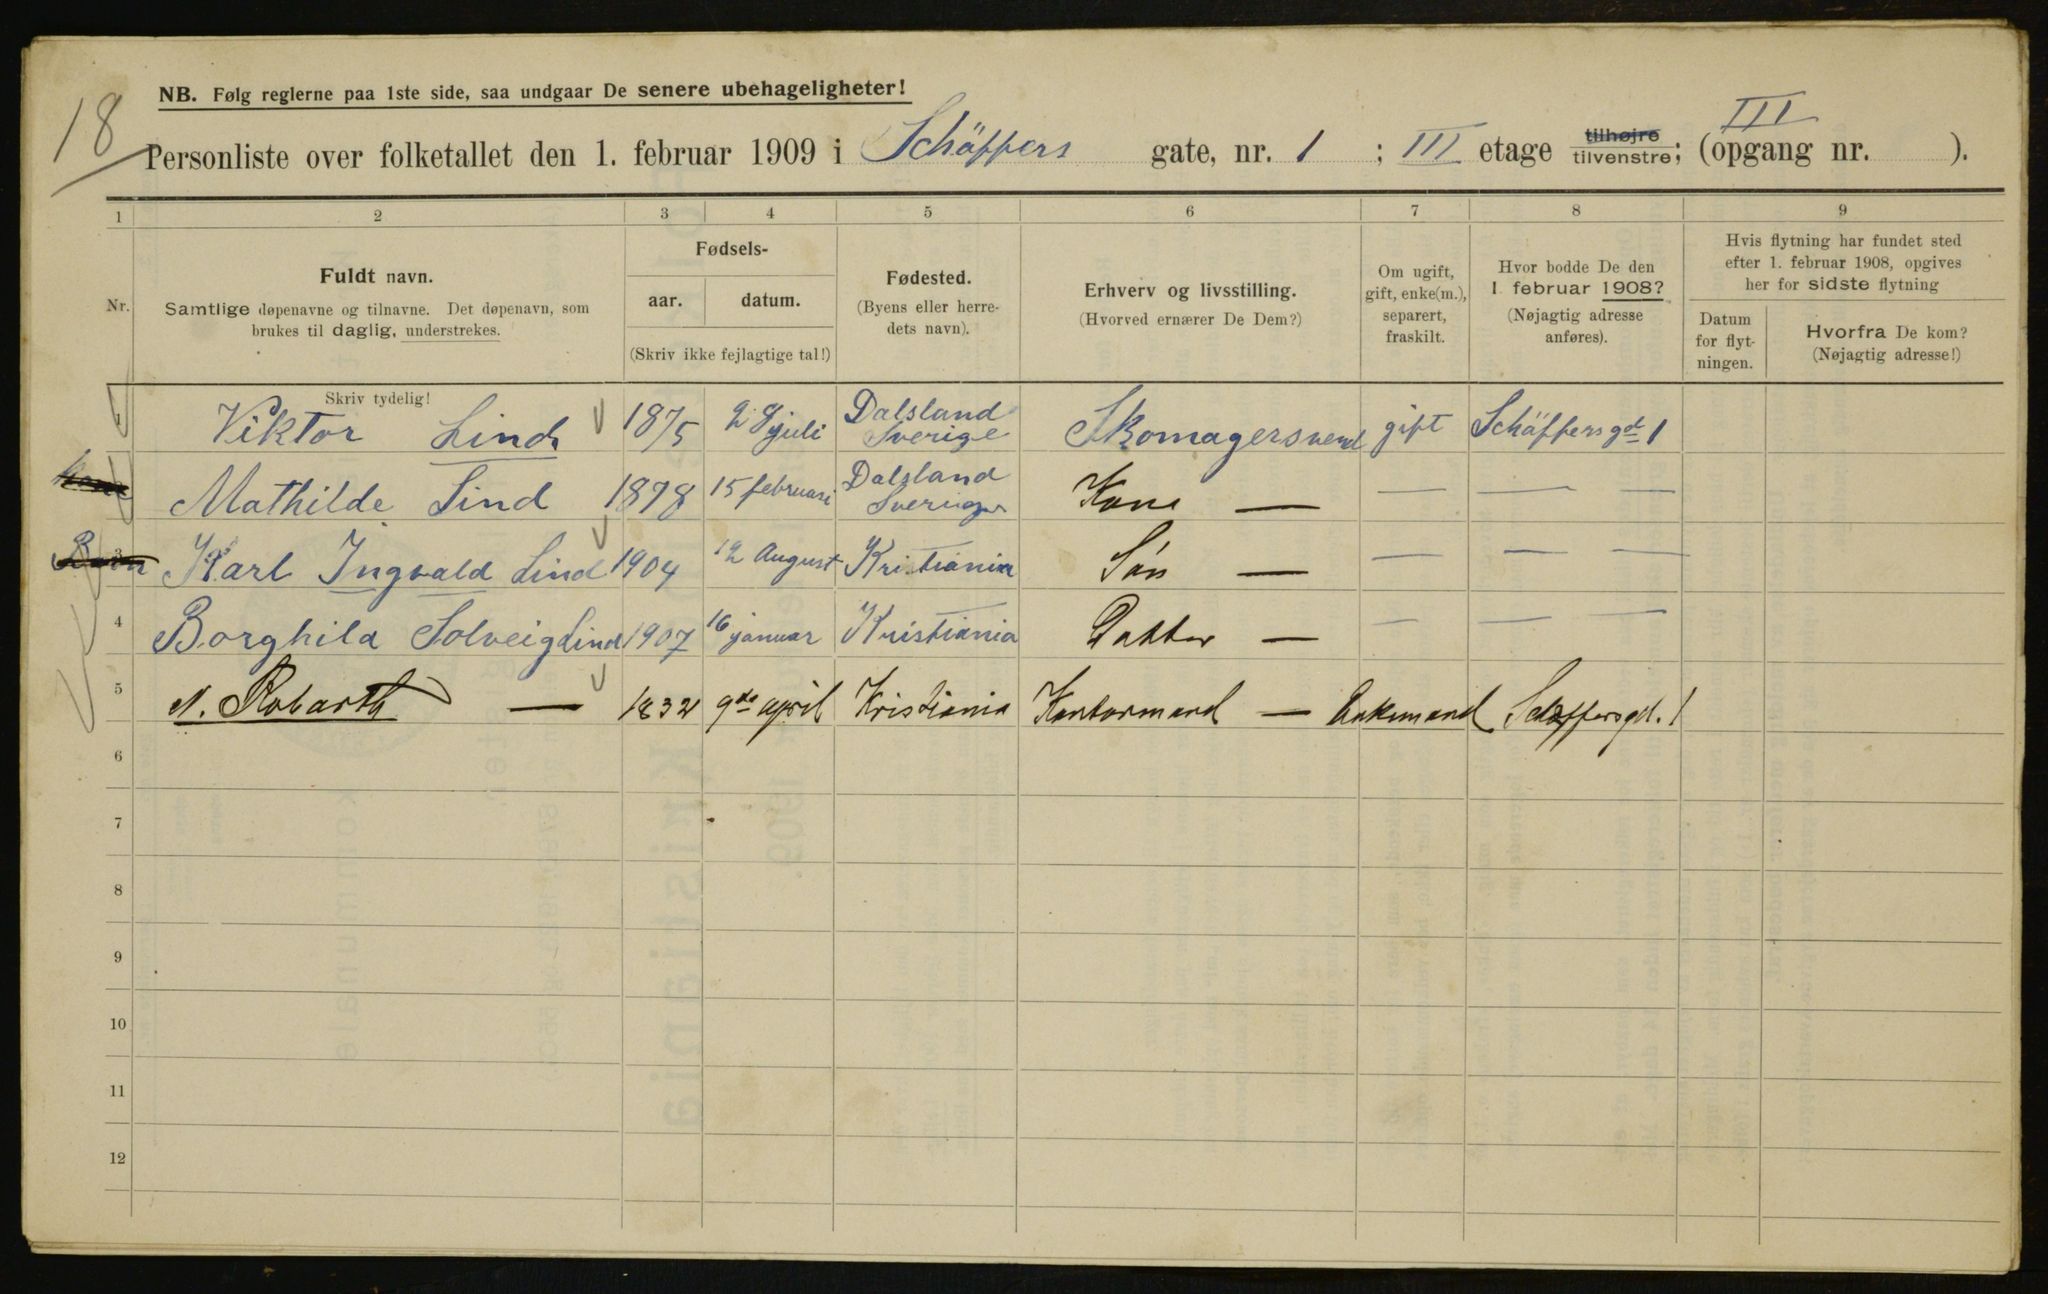 18
NB. Følg reglerne paa 1ste side, saa undgaar De senere ubehageligheter!
Personliste over folketallet den 1. februar 1909 i Schäffers gate, nr. 1 ; III etage tilhøjre tilvenstre; (opgang nr. III ).
1 2 3 4 5 6 7 8 9
Nr.
Fuldt navn.
Samtlige døpenavne og tilnavne. Det døpenavn, som
brukes til daglig, understrekes.
Fødsels-
aar. datum.
(Skriv ikke fejlagtige tal!)
Fødested.
(Byens eller herre-
dets navn).
Erhverv og livsstilling.
(Hvorved ernærer De Dem?)
Om ugift,
gift, enke(m.),
separert,
fraskilt.
Hvor bodde De den
1 februar 1908?
(Nøjagtig adresse
anføres).
Hvis flytning har fundet sted
efter 1. februar 1908, opgives
her for sidste flytning
Datum
for flyt-
ningen.
Hvorfra De kom?
(Nøjagtig adresse!)
Skriv tydelig!
1 Viktor Lind 1875 28 juli Dalsland Sverige Skomagersvend gift Schäffersgd 1
Kone Mathilde Lind 1878 15 februari Dalsland Sverige Kone — — — —
Barn 3 Karl Ingvald Lind 1904 12 August Kristiania Søn — — — —
4 Borghild Solveig Lind 1907 16 januar Kristiania Datter — — — —
5 N. Robarth — 1832 9de april Kristiania Kontormand — Enkemand Schæffersgd. 1
6
7
8
9
10
11
12